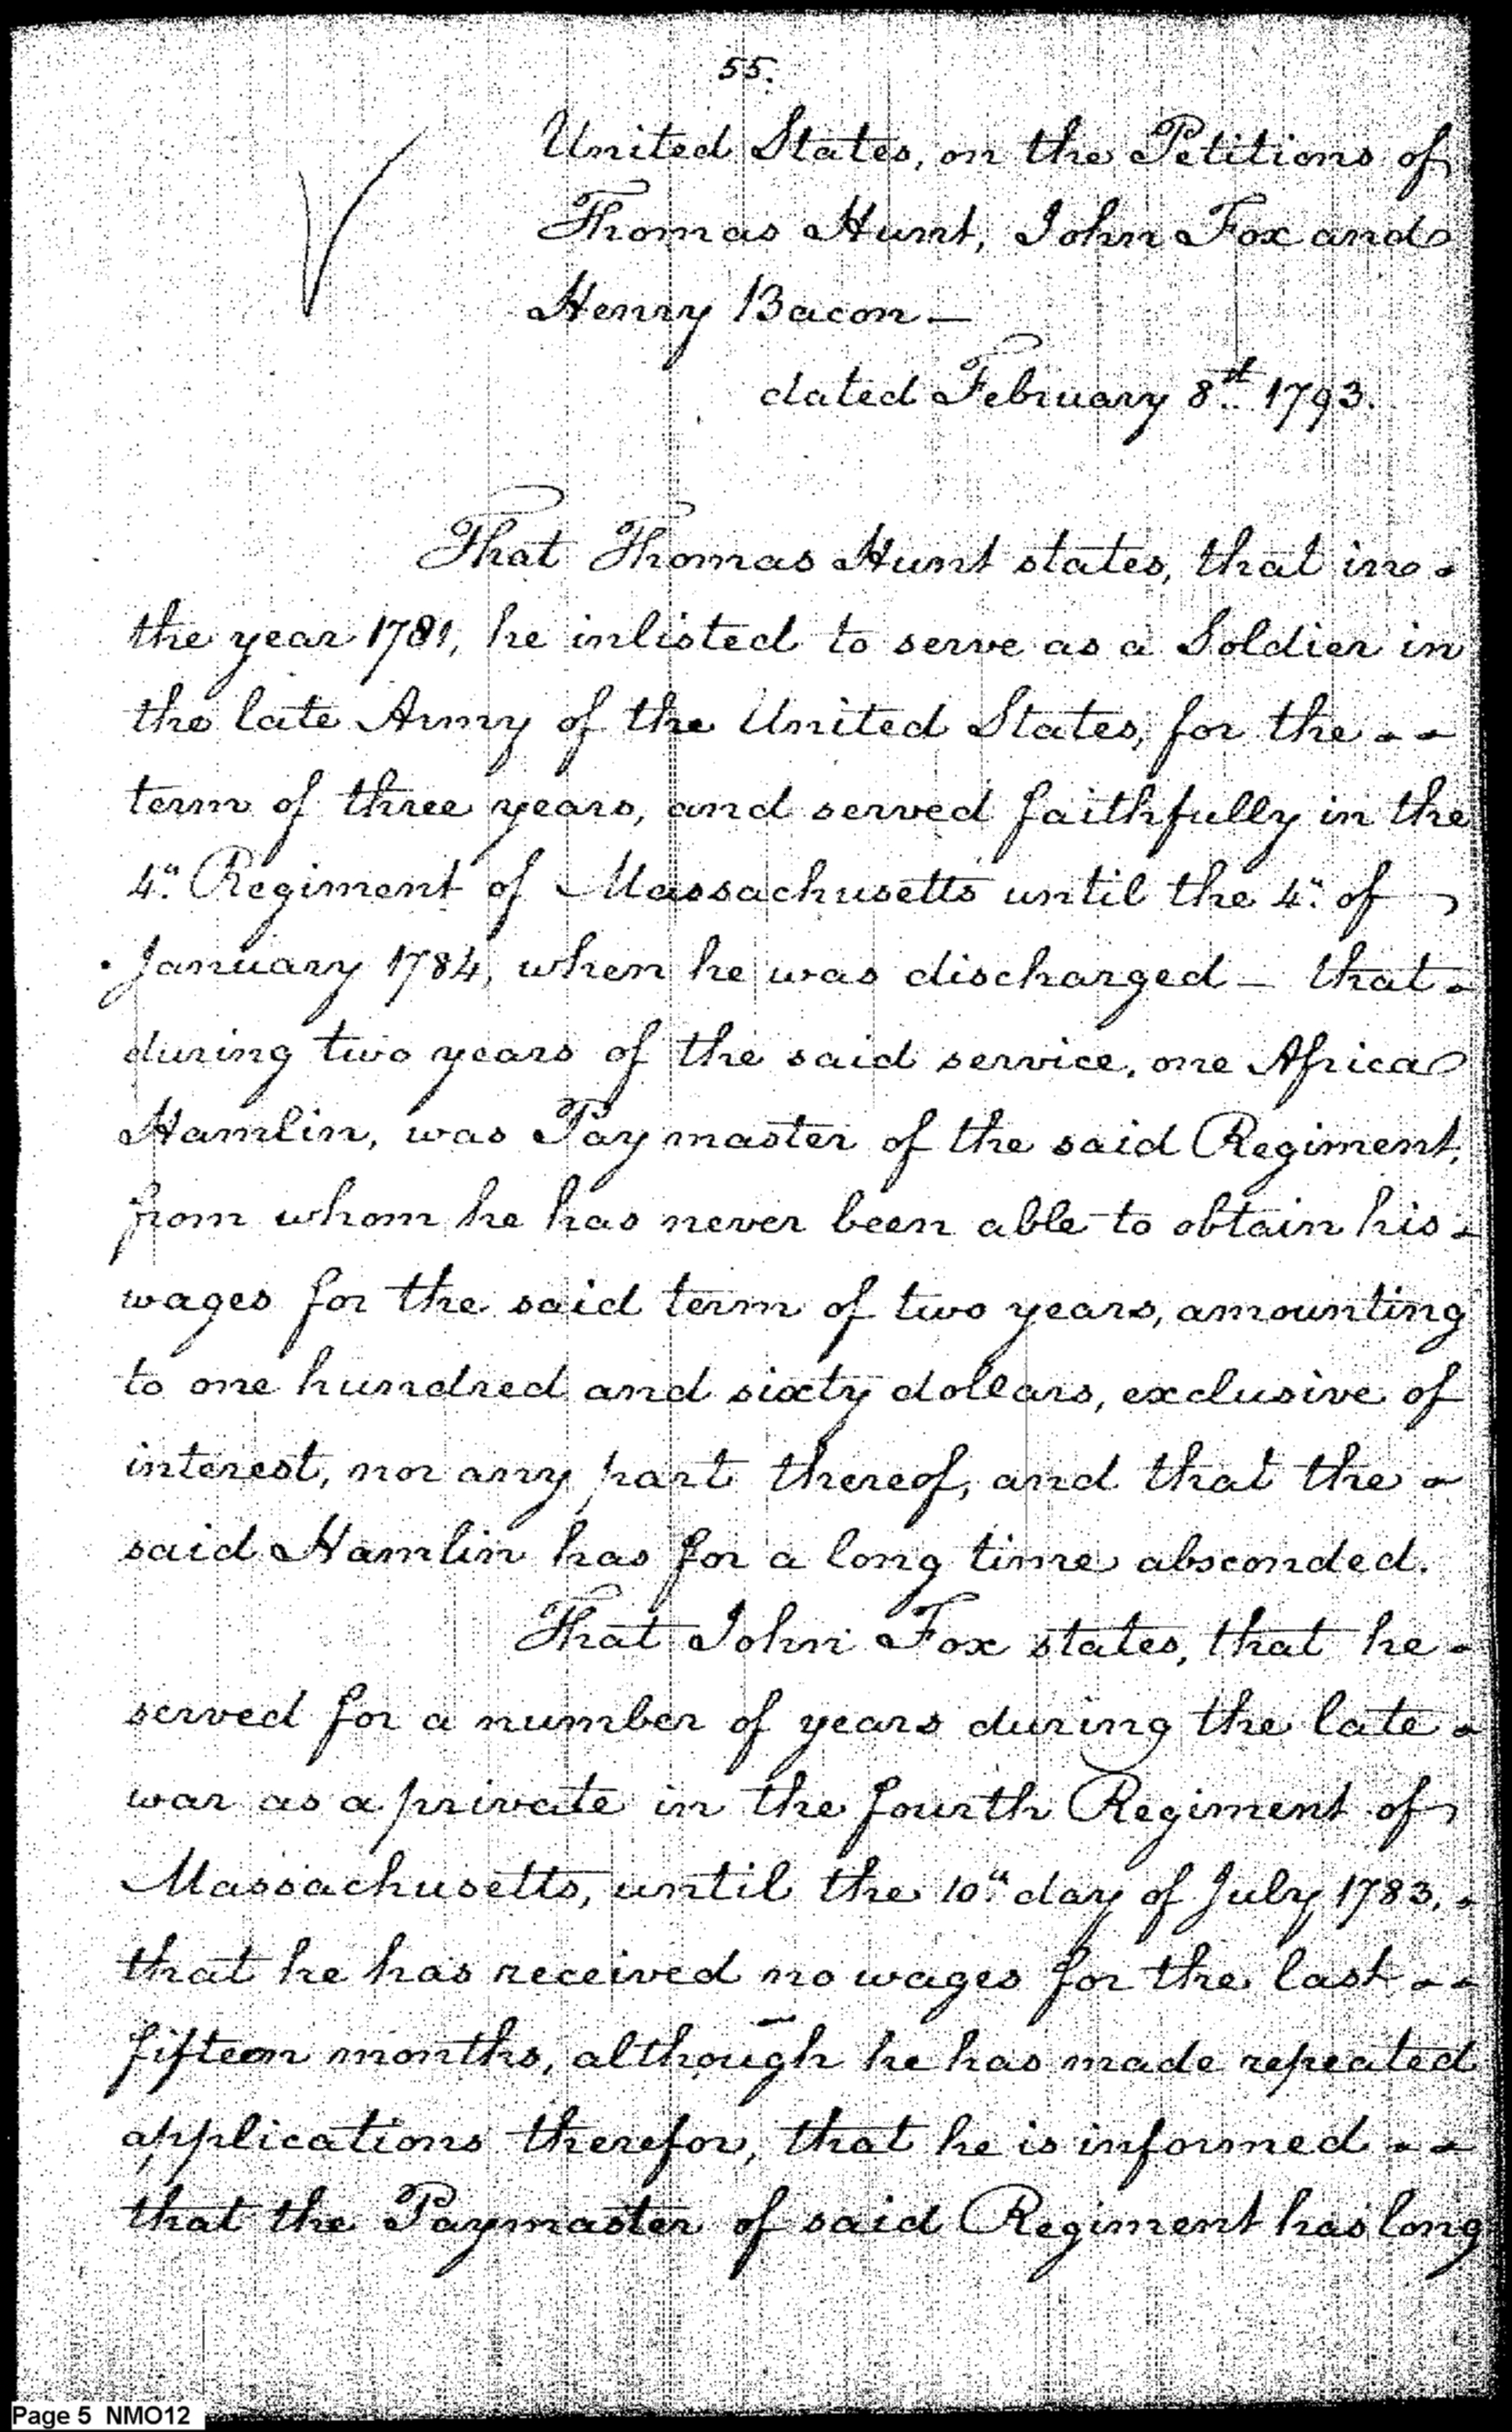 55.
United States, on the Petitions of
Thomas Hunt, John Fox and
Henry Bacon —
dated February 8st. 1793.
That Thomas Hunt states, that in -
the year 1781, he inlisted to serve as a Soldier in
the late Army of the United States, for the - -
term of three years, and served faithfully in the
4". Regiment of Massachusetts until the 4". of
January 1784, when he was discharged — that -
during two years of the said service, one Africa
Hamlin, was Paymaster of the said Regiment,
from whom he has never been able to obtain his -
wages for the said term of two years, amounting
to one hundred and sixty dollars, exclusive of
interest, nor any part thereof, and that the -
said Hamlin has for a long time absconded.
That John Fox states, that he -
served for a number of years during the late -
war as a private in the fourth Regiment of
Massachusetts, until the 10th. day of July 1783. -
that he has received no wages for the last - -
fifteen months, although he has made repeated
applications therefor, that he is informed - -
that the Paymaster of said Regiment has long
Page 5 NMO12